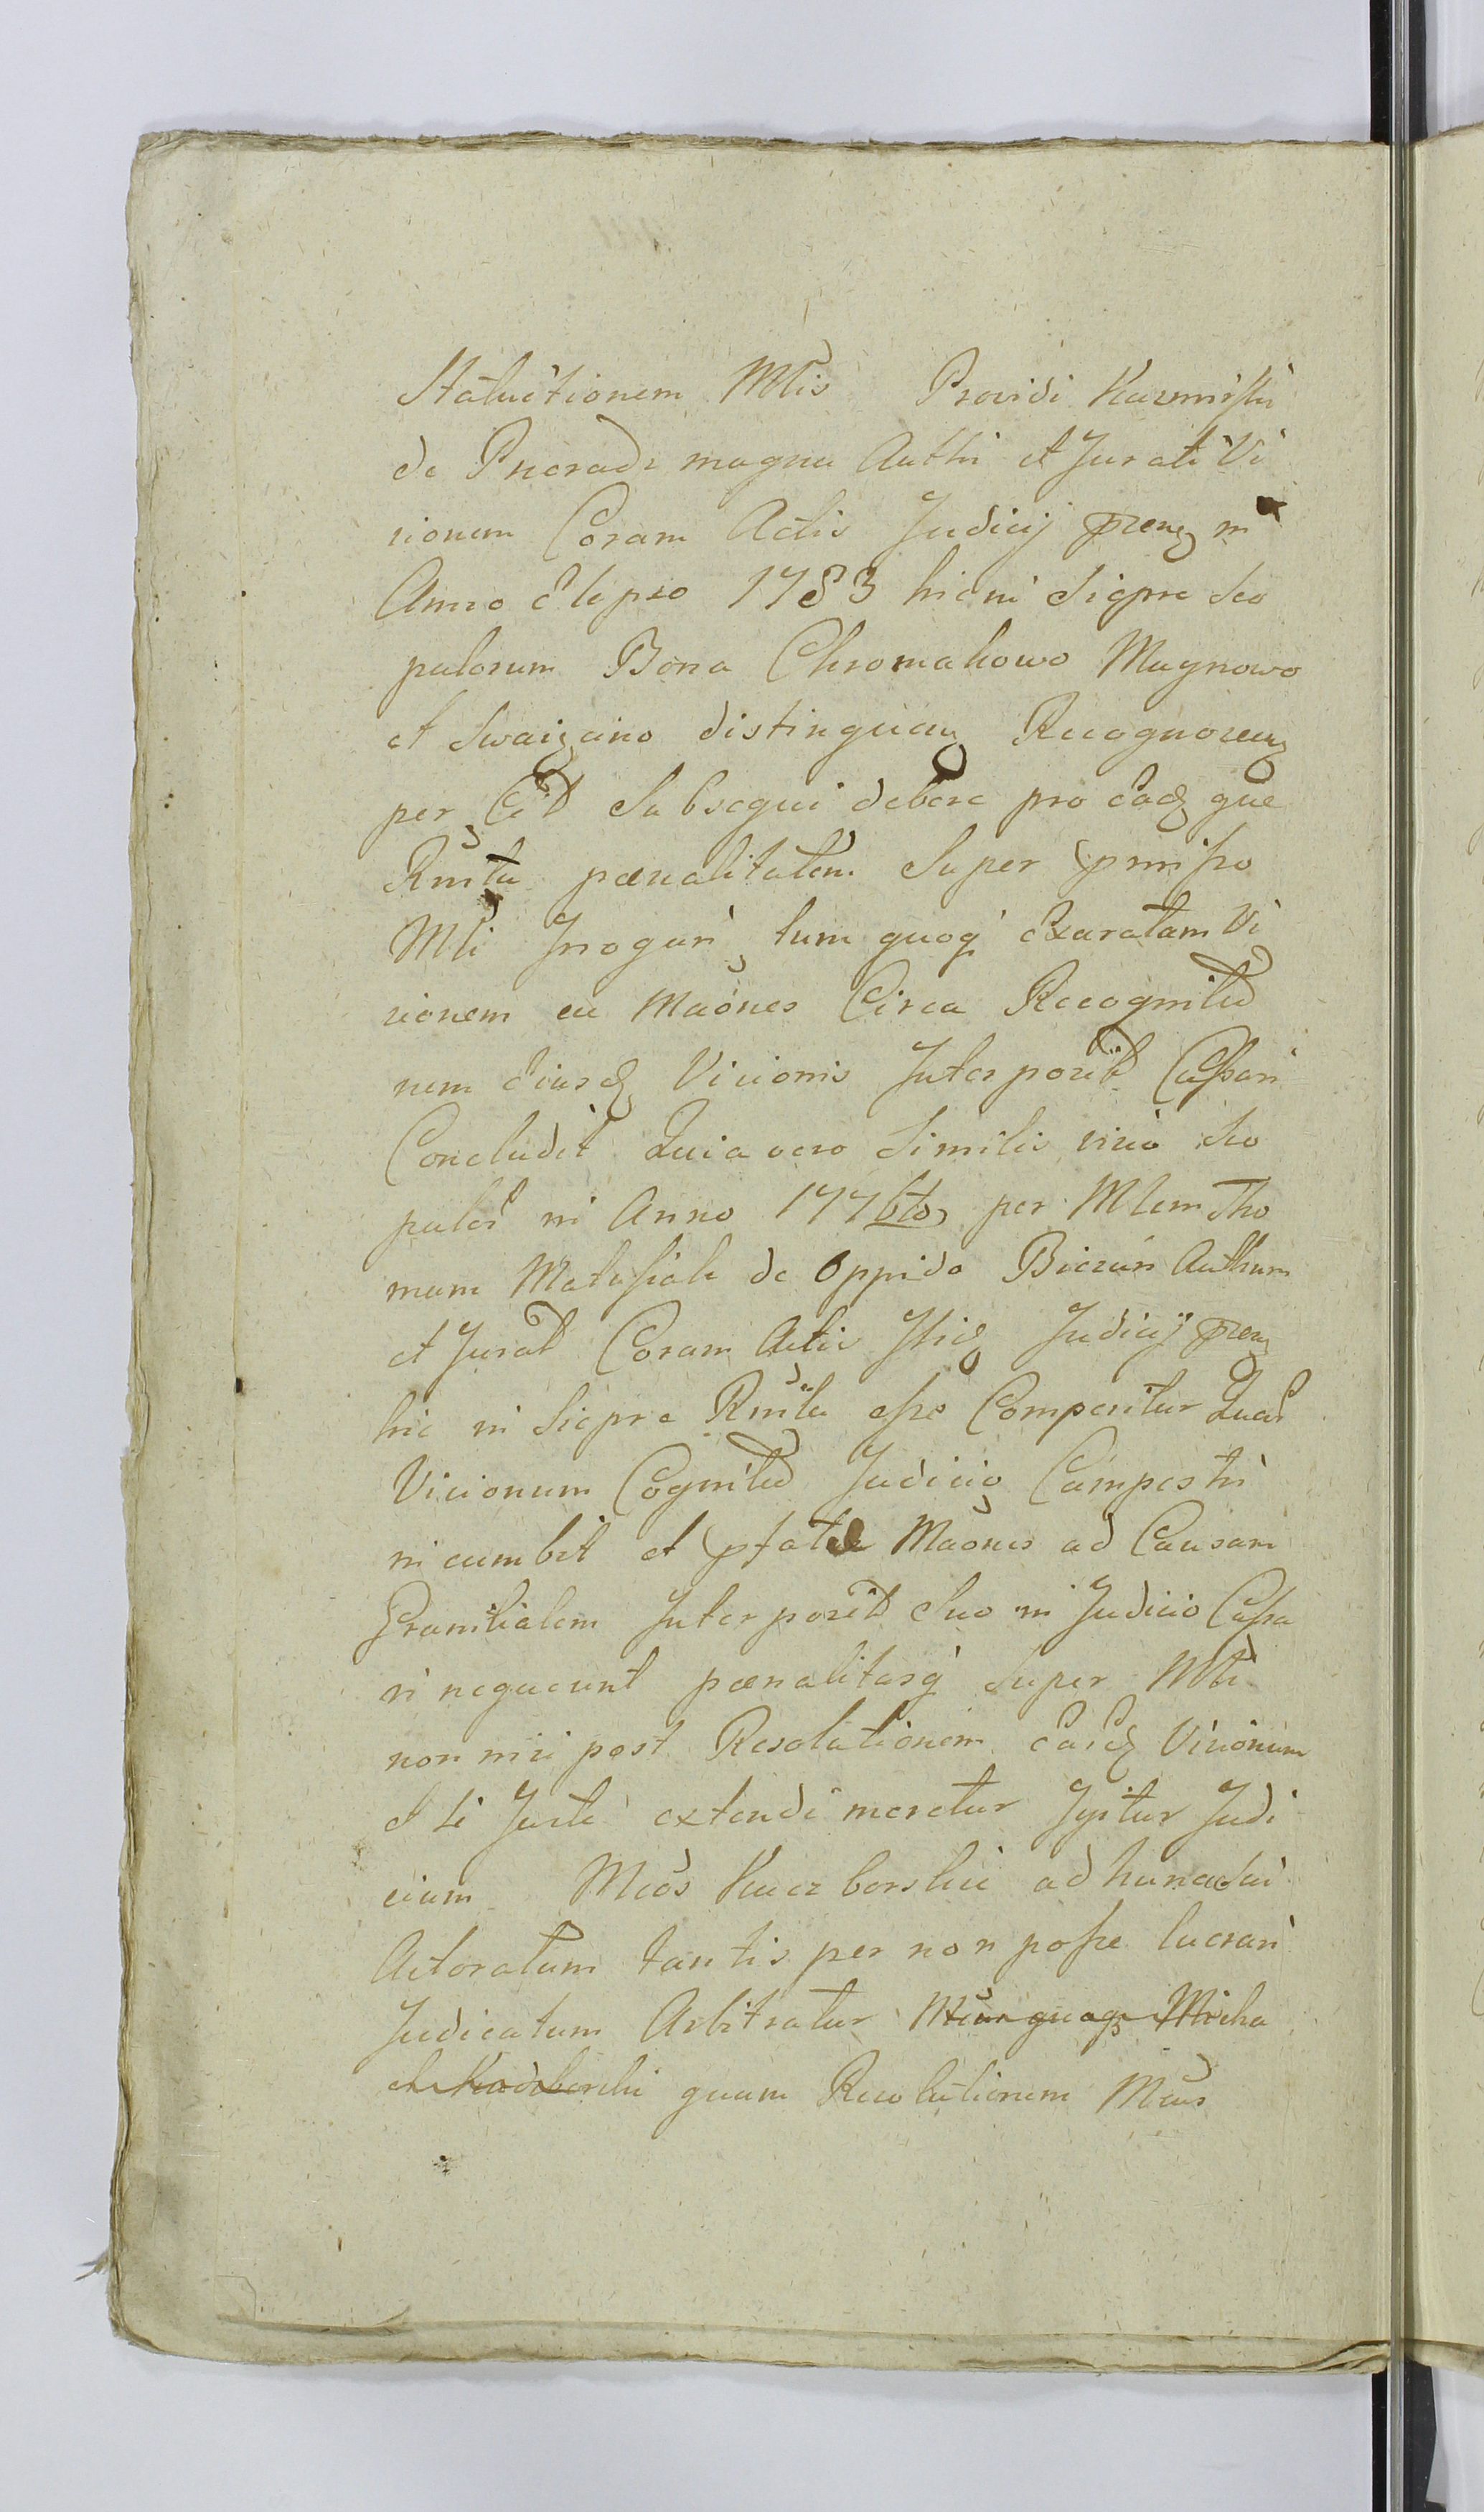 Statuitionem Mlis Providi Kazmirski
de Pneradz magna Autti et Jurati Vi
sionem Coram Actis Judicij prens in
Anno elepso 1783 hic in Siepre Sco
pulorum Bona Chromakowo Magnowo
et Swaięcino distinguen Recognoscen
per Cit Subsequi debere pro eadq que
Rmta pœnalitatem Super pmisso
Mli Jrrogari tum quoq exaratam Vi
sionem eu Maones Circa Recognitio
nem eiusdq Visionis Interposit Cassari
Concludit Quia vero Similis visio Sco
pulor in Anno 1776to per Mlem Tho
mam Matusiak de Oppido Bieżuń Authum
et Jurat Coram Actis Jtidq Judicij pren
hic in Siepre Rmta esse Comperitur Quar
Visionum Cognitio Judicio Campestri
incumbit et pfate Maones ad Causam
Granitialem Interposit Suo in Judicio Cassa
ri nequeunt pœnalitasq Super Mli
non nisi post Resolutionem earq Visionum
et si Juste extendi meretur Jgitur Judi
cium Mcos Kuczborskie ad hunc Sui
Actoratum tantisper non posse lucrari
Judicatum Arbitratur Mcumquaqs Micha
el Kuczborski quam Resolutionem Mcus